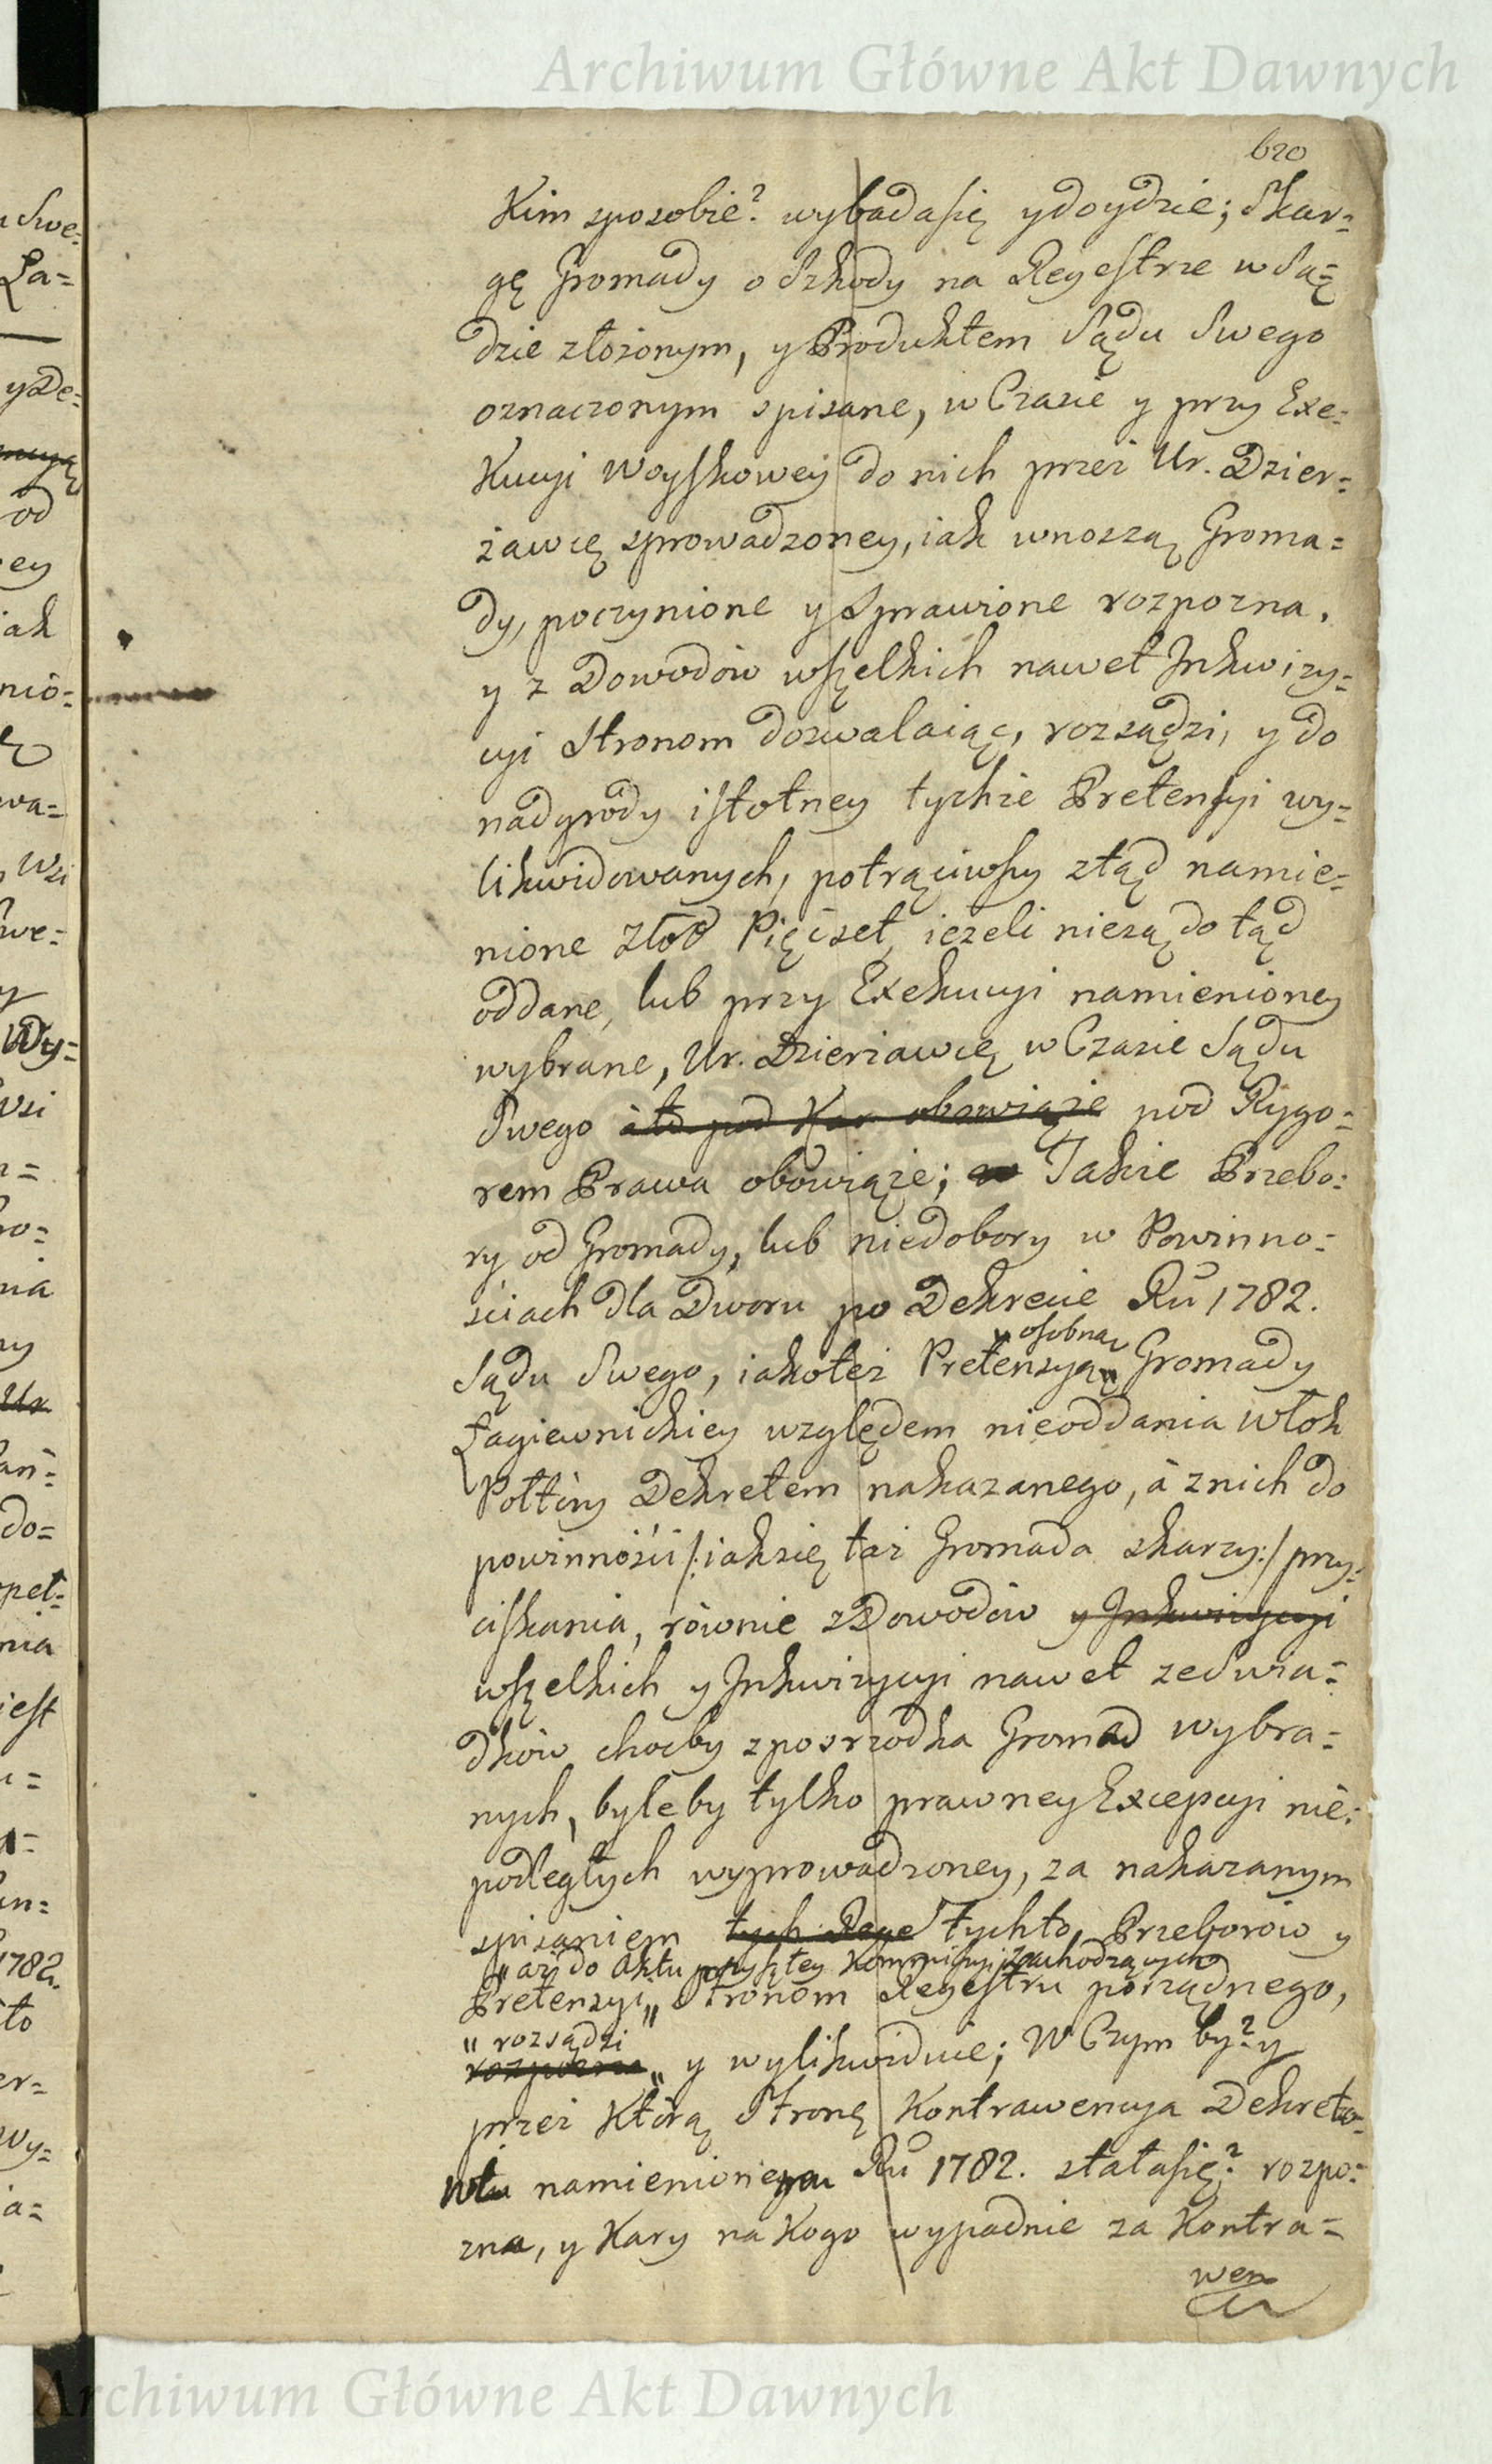 Archiwum Główne Akt Dawnych
620
Kim sposobie? wybada się y doydzie; Skar=
gę Gromady o Szkody na Regestrze w Są=
dzie złożonym, y Produktem Sądu Swego
oznaczonym spisane, w Czasie y przy Exe=
kucyi Woyskowey do nich przez Ur. Dzier=
żawcę sprowadzoney, iak wnoszą Groma=
dy, poczynione y Sprawione rozpozna,
y z Dowodów wszelkich nawet Inkwizy=
cyi Stronom dozwalaiąc, rozsądzi, y do
nadgrody istotney tychże Pretensyi wy=
likwidowanych, potrąciwszy ztąd namie=
nione Złot Pięćset, ieżeli niesą do tąd
oddane, lub przy Exekucyi namienioney
wybrane, Ur. Dzierżawcę w Czasie Sądu
Swego ato pod Kar obowiąże pod Rygo=
rem Prawa obowiąże; Jakie Przebo=
ry od Gromady, lub niedobory w Powinno=
ściach dla Dworu po Dekrecie Ru 1782.
" osobną
Sądu Swego, iakoteż Pretensyą " Gromady
Łagiewnickiey względem nieoddania Włok
Połtory Dekretem nakazanego, á z nich do
powinności /: iak się taż Gromada skarzy :/ przy=
ciskania, równie z Dowodów y Inkwizycyi
wszelkich y Inkwizycyi nawet ze Swia=
dków choćby zposrzodka Gromad wybra=
nych, byleby tylko prawney Excepcyi nie=
podległych wyprowadzoney, za nakazanym
spisaniem tych Rege Tychto, Przeborów y
" aż do Aktu przyszłey Kommissyi zachodzących
Pretensyi, " Stronom Regestru porządnego,
" rozsądzi
rozpozna " y wylikwiduie; W Czym by? y
przez Którą Stronę Kontrawencya Dekreto=
wi namienionemu Ru 1782. stała się? rozpo=
zna, y Kary na Kogo wypadnie za Kontra=
wen
Archiwum Główne Akt Dawnych